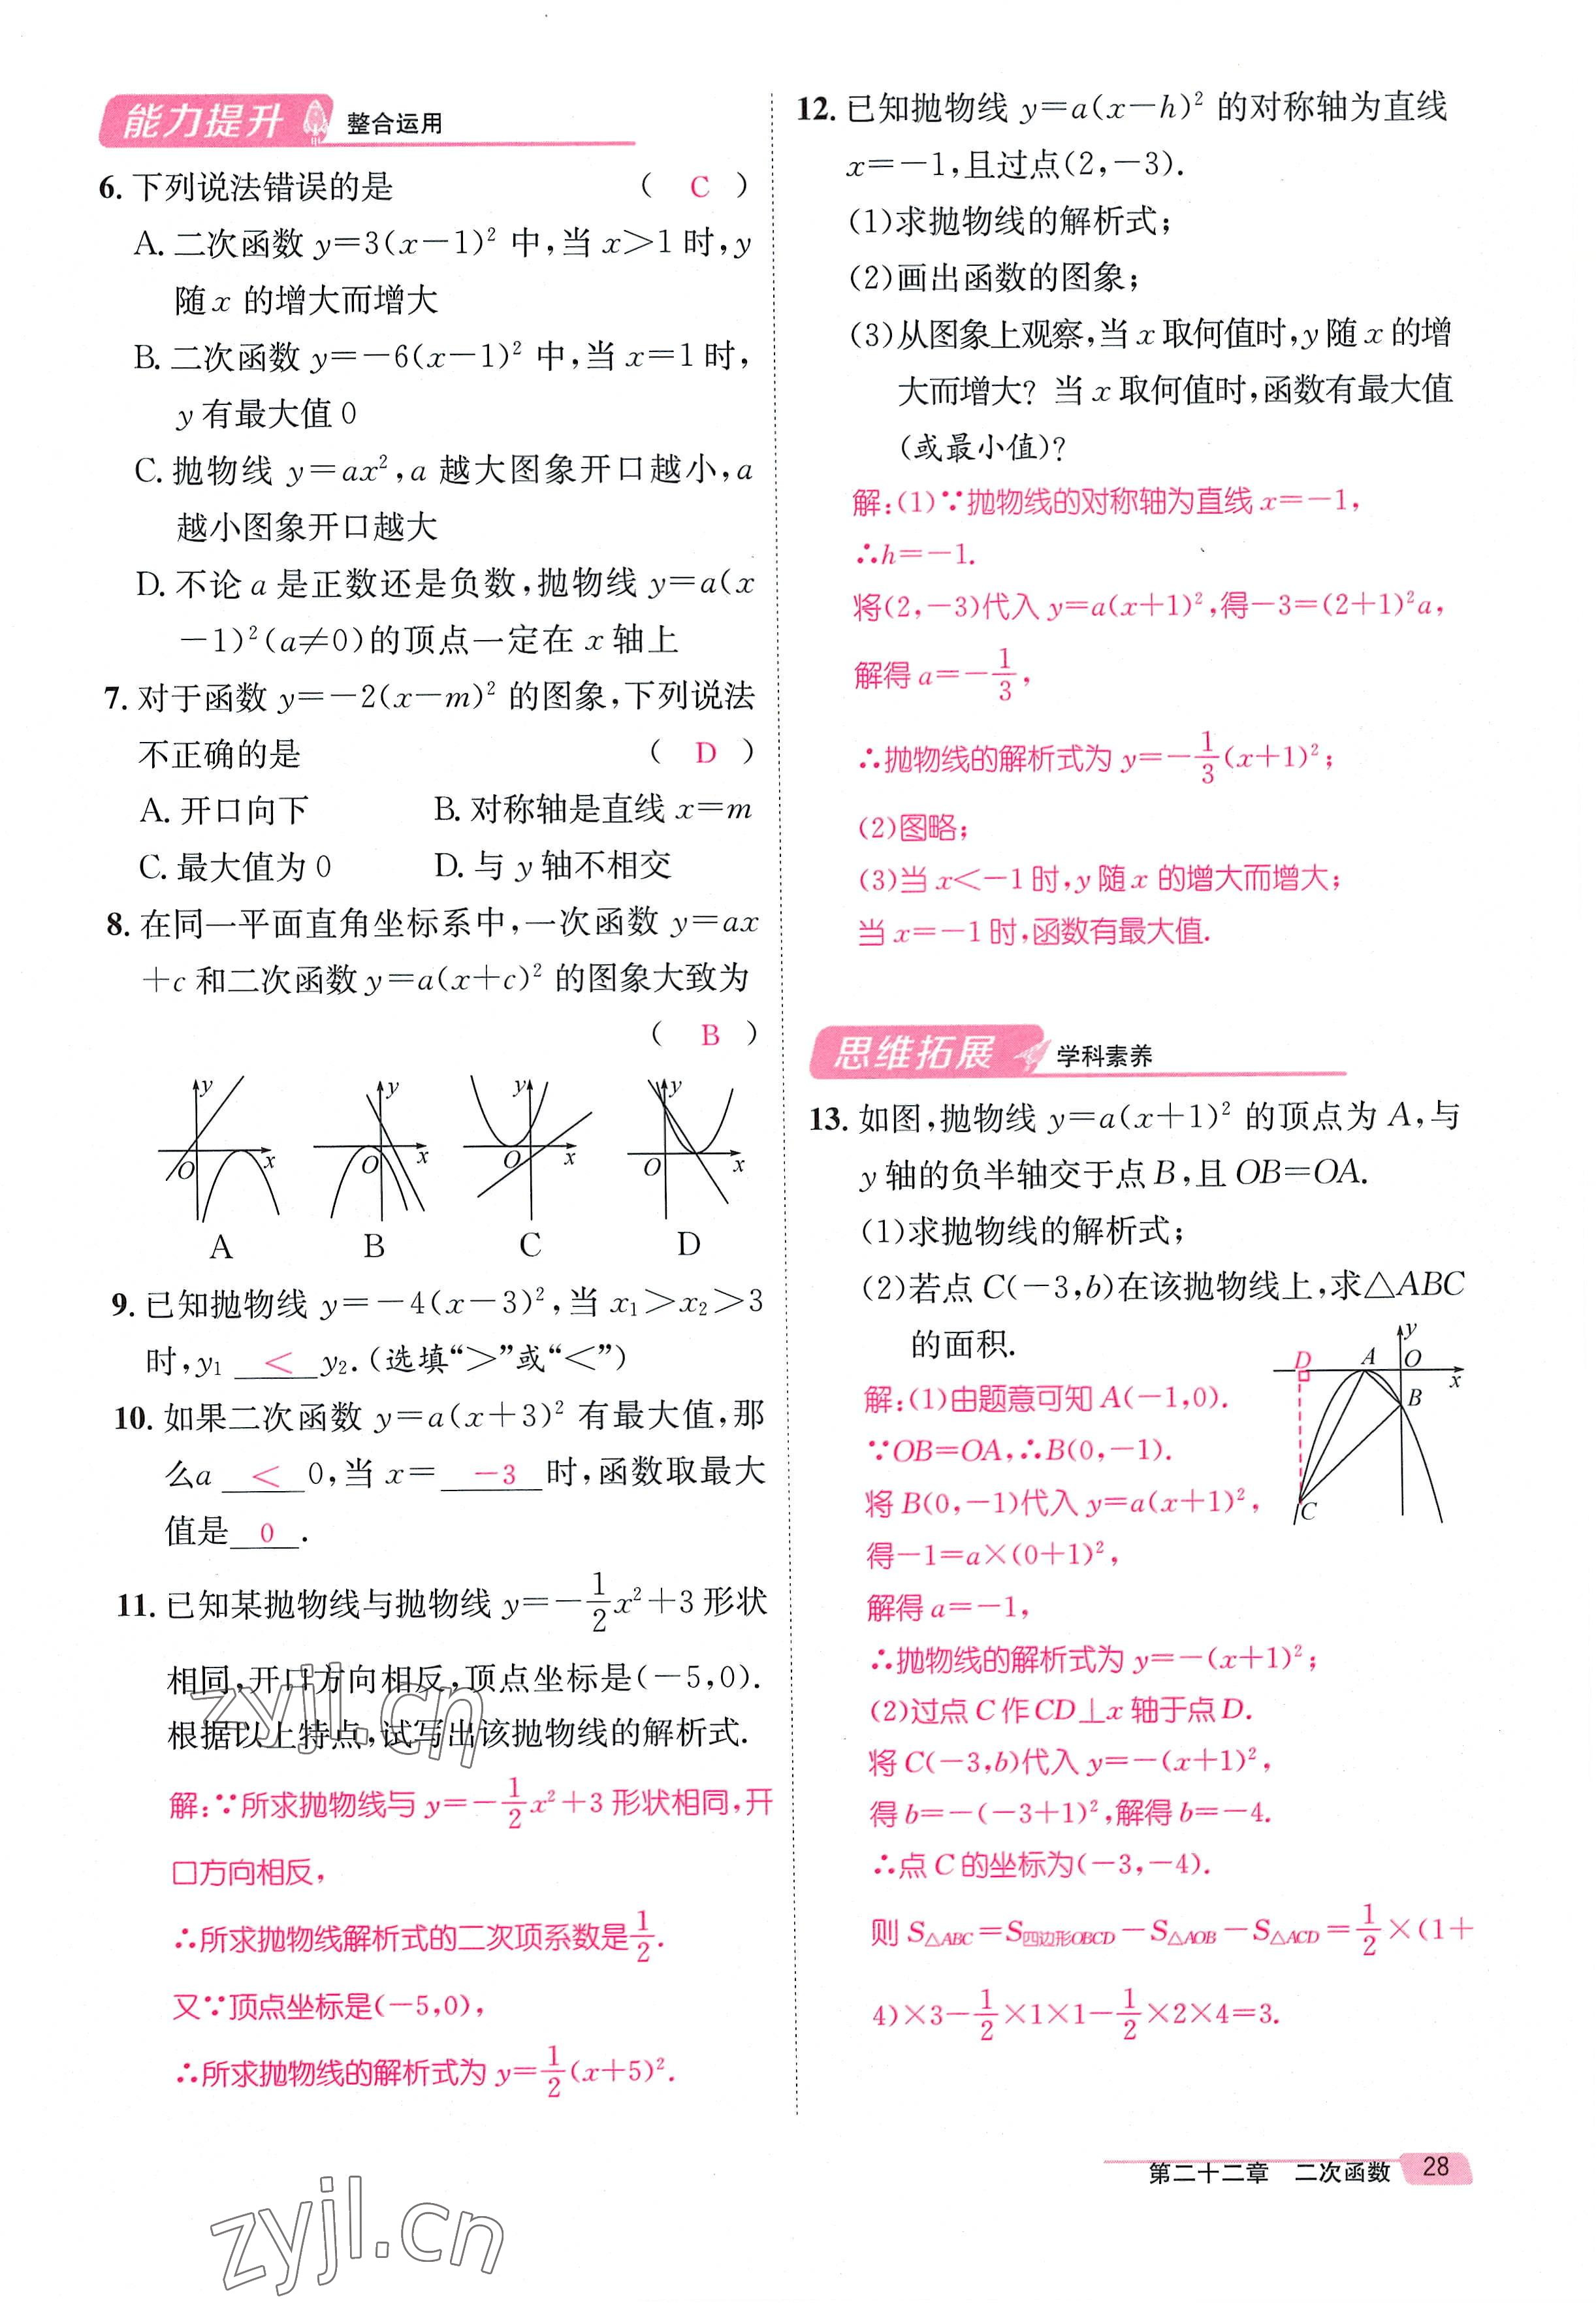 能力提升 整合运用
6. 下列说法错误的是 ( C )
A. 二次函数 y=3(x-1)² 中,当 x>1 时,y
随 x 的增大而增大
B. 二次函数 y=-6(x-1)² 中,当 x=1 时,
y 有最大值 0
C. 抛物线 y=ax²,a 越大图象开口越小,a
越小图象开口越大
D. 不论 a 是正数还是负数,抛物线 y=a(x
-1)²(a≠0)的顶点一定在 x 轴上
7. 对于函数 y=-2(x-m)² 的图象,下列说法
不正确的是 ( D )
A. 开口向下 B. 对称轴是直线 x=m
C. 最大值为 0 D. 与 y 轴不相交
8. 在同一平面直角坐标系中,一次函数 y=ax
+c 和二次函数 y=a(x+c)² 的图象大致为
( B )
y y y y
O x O x O x O x
A B C D
9. 已知抛物线 y=-4(x-3)²,当 x₁>x₂>3
时,y₁ < y₂.(选填“>”或“<”)
10. 如果二次函数 y=a(x+3)² 有最大值,那
么a < 0,当 x= -3 时,函数取最大
值是 0 .
11. 已知某抛物线与抛物线 y=-1/2x²+3 形状
相同,开口方向相反,顶点坐标是(-5,0).
根据以上特点,试写出该抛物线的解析式.
解:∵所求抛物线与 y=-1/2x²+3 形状相同,开
口方向相反,
∴所求抛物线解析式的二次项系数是1/2.
又∵顶点坐标是(-5,0),
∴所求抛物线的解析式为 y=1/2(x+5)².
12. 已知抛物线 y=a(x-h)² 的对称轴为直线
x=-1,且过点(2,-3).
(1)求抛物线的解析式;
(2)画出函数的图象;
(3)从图象上观察,当 x 取何值时,y 随 x 的增
大而增大? 当 x 取何值时,函数有最大值
(或最小值)?
解:(1)∵抛物线的对称轴为直线 x=-1,
∴h=-1.
将(2,-3)代入 y=a(x+1)²,得-3=(2+1)²a,
解得 a=-1/3,
∴抛物线的解析式为 y=-1/3(x+1)²;
(2)图略;
(3)当 x<-1 时,y 随 x 的增大而增大;
当 x=-1 时,函数有最大值.
思维拓展 学科素养
13. 如图,抛物线 y=a(x+1)² 的顶点为 A,与
y 轴的负半轴交于点 B,且 OB=OA.
(1)求抛物线的解析式;
(2)若点 C(-3,b)在该抛物线上,求△ABC
的面积.
y
D A O x
B
C
解:(1)由题意可知 A(-1,0).
∵OB=OA,∴B(0,-1).
将 B(0,-1)代入 y=a(x+1)²,
得-1=a×(0+1)²,
解得 a=-1,
∴抛物线的解析式为 y=-(x+1)²;
(2)过点 C 作 CD⊥x 轴于点 D.
将 C(-3,b)代入 y=-(x+1)²,
得 b=-(-3+1)²,解得 b=-4.
∴点 C 的坐标为(-3,-4).
则 S△ABC=S四边形OBCD-S△AOB-S△ACD=1/2×(1+
4)×3-1/2×1×1-1/2×2×4=3.
第二十二章 二次函数 28
zyjl.cn
zyjl.cn